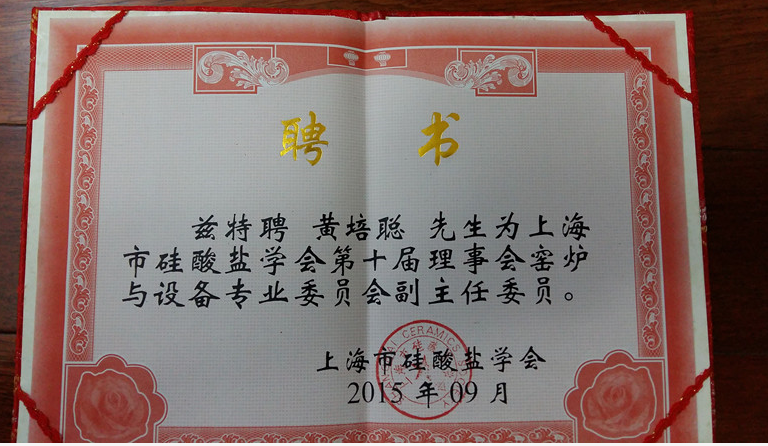 聘 书
兹特聘 黄培聪 先生为上海
市硅酸盐学会第十届理事会窑炉
与设备专业委员会副主任委员。
上海市硅酸盐学会
2015 年 09 月
CERAMICS